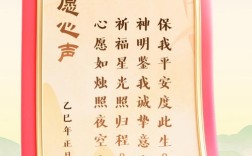 愿心声
乙巳年正月
心愿如烛照夜空
祈福星光照归程。
神明鉴我诚挚意
保我平安度此生。